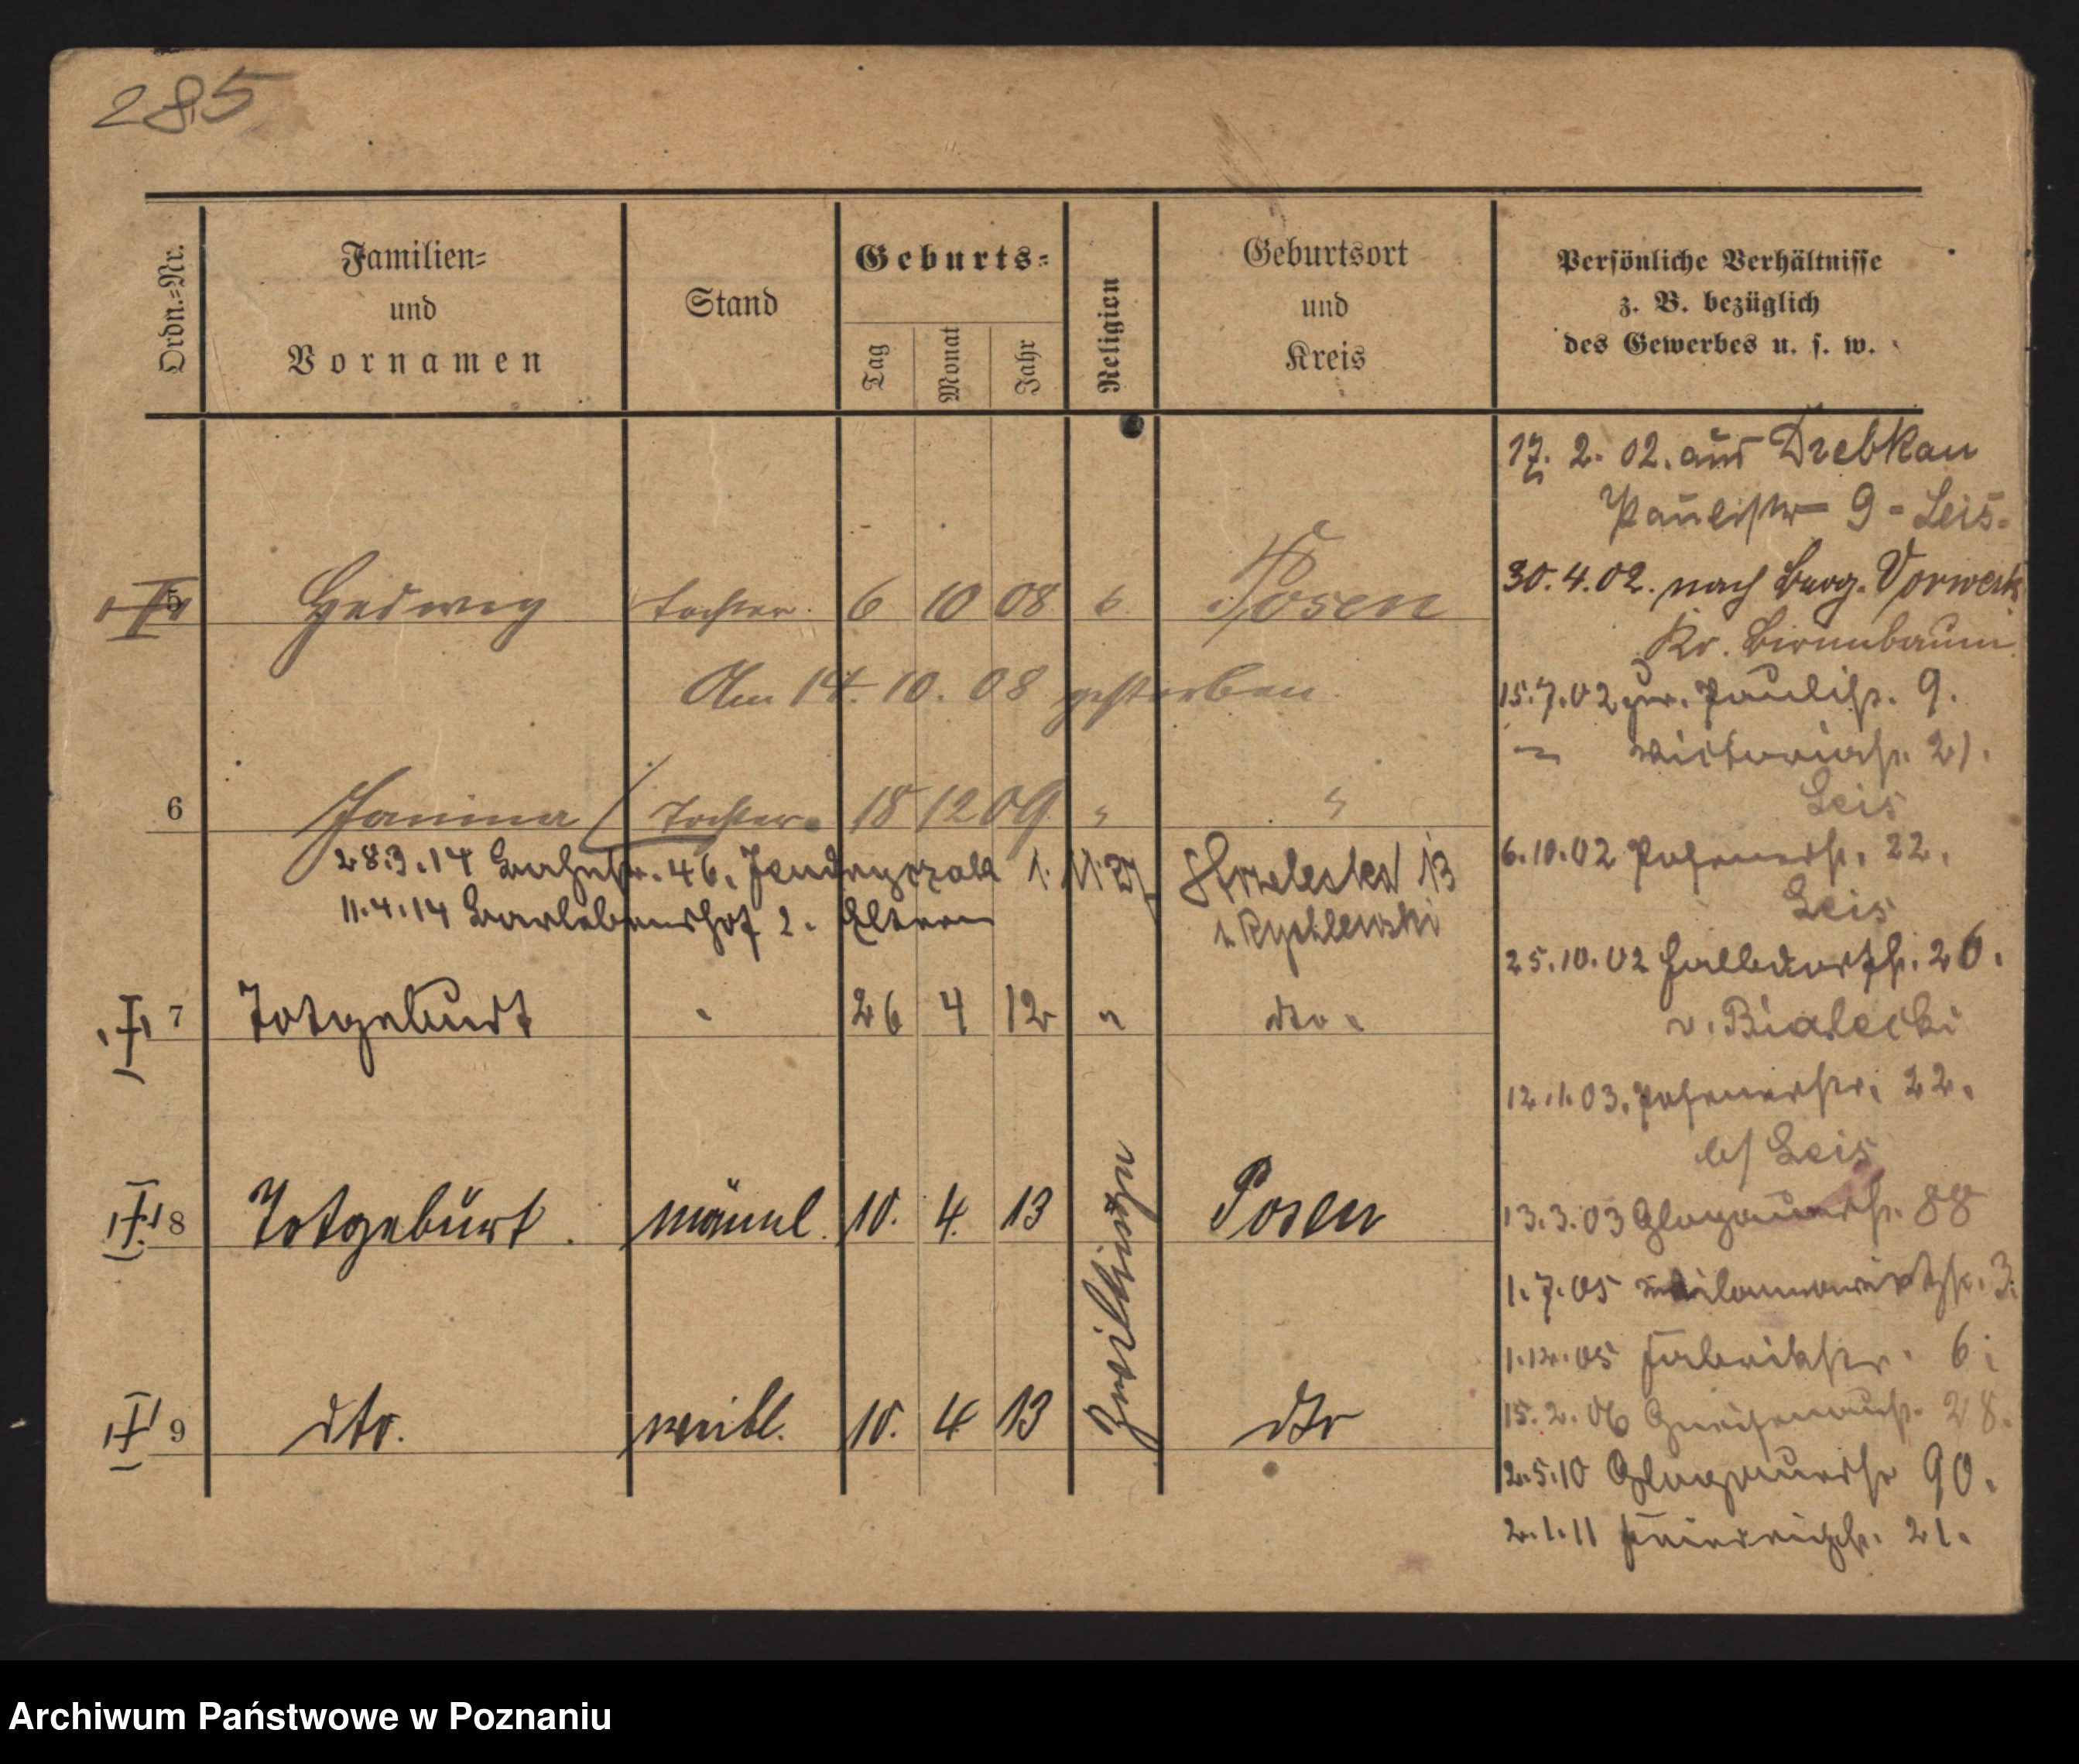 285
Ordn.-Nr.
Familien-
und
Vornamen
Stand
Geburts-
Tag
Monat
Jahr
Religion
Geburtsort
und
Kreis
Persönliche Verhältnisse
z. B. bezüglich
des Gewerbes u. s. w.
5 Hedwig Tochter. 6 10 08 Posen
Am 14. 10. 08 gestorben.
6 Janina Tochter 18 12 09 " "
28.3.14 Bahnstr. 46. 1.11.27 13
11.4.14 Barlebenshof 2. Eltern v Rychlewski
7 Totgeburt " 26 4 12 " dto.
8 Totgeburt. männl. 10. 4. 13 Posen
Zwillinge
9 dto. weibl. 10. 4 13 dto
17. 2. 02. aus Drebkau
Paulistr 9 - Leis.
30.4.02. nach Burg. Vorwerk
Kr. Birnbaum
15.7.02 zur. Paulistr. 9.
Victoriastr. 21.
Leis
6.10.02 Posenerstr. 22.
Leis
25.10.02 Halbdorfstr. 26.
v. Bialecki
12.1.03. Posenerstr. 22.
b/ Leis
13.3.03 Glogauerstr. 88
1.7.05 3.
1.12.05 Fabrikstr. 6
15.2.06 Gneisenaustr. 28.
2.5.10 Glogauerstr 90.
2.1.11 Friedrichstr. 21.
Archiwum Państwowe w Poznaniu